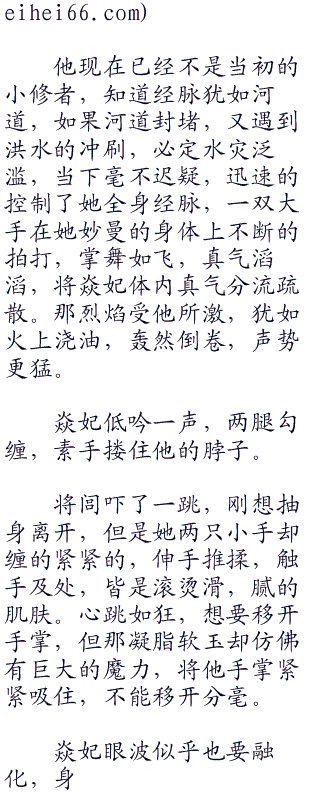 eihei66.com)
他现在已经不是当初的
小修者，知道经脉犹如河
道，如果河道封堵，又遇到
洪水的冲刷，必定水灾泛
滥，当下毫不迟疑，迅速的
控制了她全身经脉，一双大
手在她妙曼的身体上不断的
拍打，掌舞如飞，真气滔
滔，将焱妃体内真气分流疏
散。那烈焰受他所激，犹如
火上浇油，轰然倒卷，声势
更猛。
焱妃低吟一声，两腿勾
缠，素手搂住他的脖子。
将闾吓了一跳，刚想抽
身离开，但是她两只小手却
缠的紧紧的，伸手推揉，触
手及处，皆是滚烫滑，腻的
肌肤。心跳如狂，想要移开
手掌，但那凝脂软玉却仿佛
有巨大的魔力，将他手掌紧
紧吸住，不能移开分毫。
焱妃眼波似乎也要融
化，身